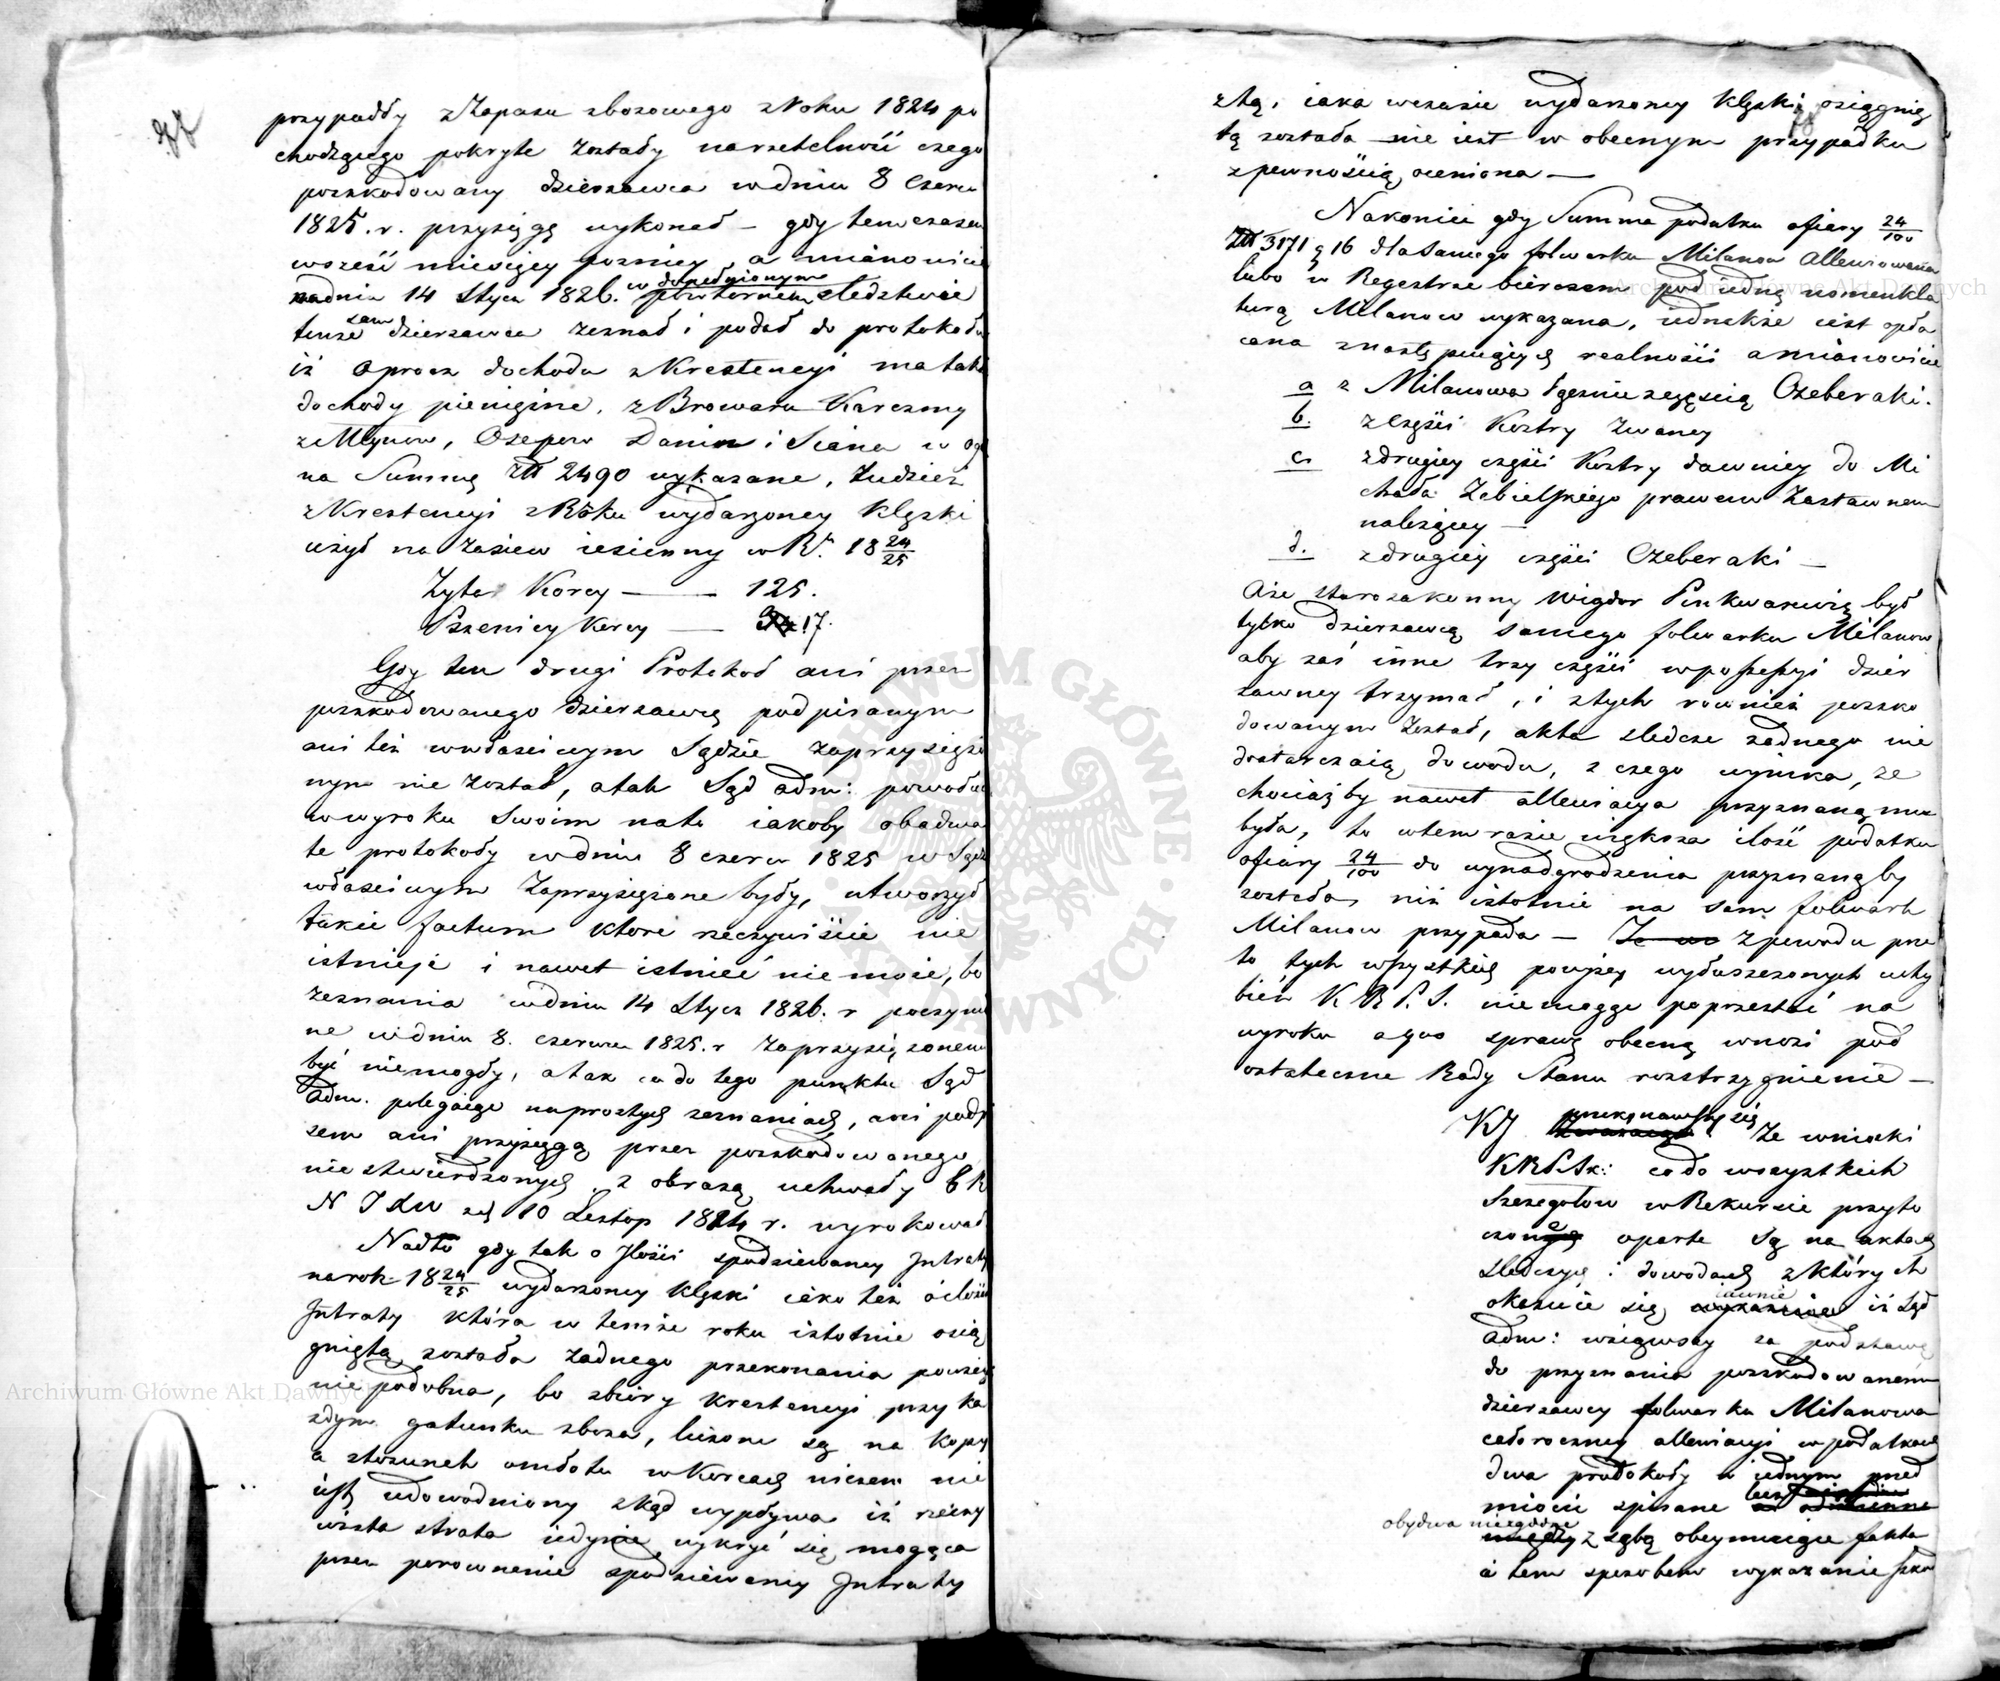 przypadły z Zapasu zbozowego z Roku 1824 po
chodzącego pokryte zostały na rzetelność czego
poszkodowany dzierzawca w dniu 8 Czerw
1825. r. przysięgę wykonał – gdy tem czasem
w sześć miesięcy pozniey, a mianowicie
w dopełnionym
w dniu 14 Stycz 1826. powtornem sledztwie
tenze sam dzierzawca zeznał i podał do protokołu
iż oprocz dochodu z Krestencyi ma także
dochody pienięzne, z Browaru Karczmy
z Młynow, Czepow Danin i Siana w og
na Summę Złł 2490 wykazane, tudzież
z Krestencyi z Roku wydarzoney klęski
użył na zasiew iesienny w R. 18 24/25
Zyta Korcy — 125.
Pszenicy Korcy — 17.
Gdy ten drugi Protokoł ani przez
poszkodowanego dzierzawcę podpisanym
ani też w właściwym Sądzie zaprzysięzo
nym nie został, a tak Sąd Adm: powołuiąc
w wyroku swoim na to iakoby obadwa
te protokoły w dniu 8 czerw 1825 w Sądz
właściwym zaprzysięzone były, utworzył
takie factum ktore rzeczywiście nie
istnieje i nawet istnieć nie może, bo
zeznania w dniu 14 Stycz 1826. r poczynio
ne w dniu 8. czerwca 1825. r zaprzysięzonem
być niemogły, a tak co do tego punktu Sąd
Adm. polegaiąc na prostych zeznaniach, ani podpi
sem ani przysięgą przez poszkodowanego
nie stwierdzonych, z obrazą uchwały
10 Listop 1824 r. wyrokował
Nadto gdy tak o Ilości spodziewaney Intraty
na rok 18 24/25 wydarzoney klęski iako też o ilości
Intraty która w temże roku istotnie osią
gniętą została zadnego przekonania powziąć
nie podobna, bo zbiory krestencyi przy ka
zdym gatunku zboza, liczone są na kopy
a stosunek omłotu w korcach niczem nie
iest udowodniony zkąd wypływa iż rzeczy
wista strata iedynie wykryć się mogąca
przez porownanie spodziewaney Intraty
z tą, iaka w czasie wydarzoney klęski osiągnię
tą została nie iest w obecnym przypadku
z pewnością oceniona —
Nakoniec gdy Summa podatku ofiary 24/100
Złł 3171 g 16 dla samego folwarku Milanow allewiowana
lubo w Regestrze bierczem pod iedną nomenkla
turą Milanow wykazana, iednakże iest opła
cana z następuiących realności a mianowicie
a z Milanowa łącznie z częścią Czeberaki.
b. z części Kostry zwaney
c. z drugiey części Kostry dawniey do Mi
chała Zebielskiego prawem Zastawnem
należącey —
d. z drugiey części Czeberaki —
A że starozakonny Wigdor Pinkwasewicz był
tylko dzierzawcą samego folwarku Milanow
aby zaś inne trzy części w possessyi dzier
zawney trzymał, i z tych rownież poszko
dowanym został, akta sledcze zadnego nie
dostarczaią dowodu, z czego wynika, że
chociażby nawet allewiacya przyznaną mu
była, to w tem razie większa ilość podatku
ofiary 24/100 do wynadgrodzenia przyznanąby
została niż istotnie na sam folwark
Milanow przypada — Z powodu prze
to tych wszystkich powyżey wyłuszczonych uchy
bień K R P. S. niemogąc poprzestać na
wyroku a quo sprawę obecną wnosi pod
ostateczne Rady Stanu rozstrzygnienie —
przekonawszy się
że wnioski
KRPiSk: co do wszystkich
Szczegołow w Rekursie przyto
czone oparte są na aktach
sledczych i dowodach z których
iawnie
okazuie się iż Sąd
Adm: wziąwszy za podstawę
do przyznania poszkodowanemu
dzierzawcy folwarku Milanowa
całoroczney allewiacyi w podatkach
dwa protokoły w iednym przed
miocie spisane
obydwa niezgodne
z sobą obeymuiące fakta
a tem sposobem wykazanie szko